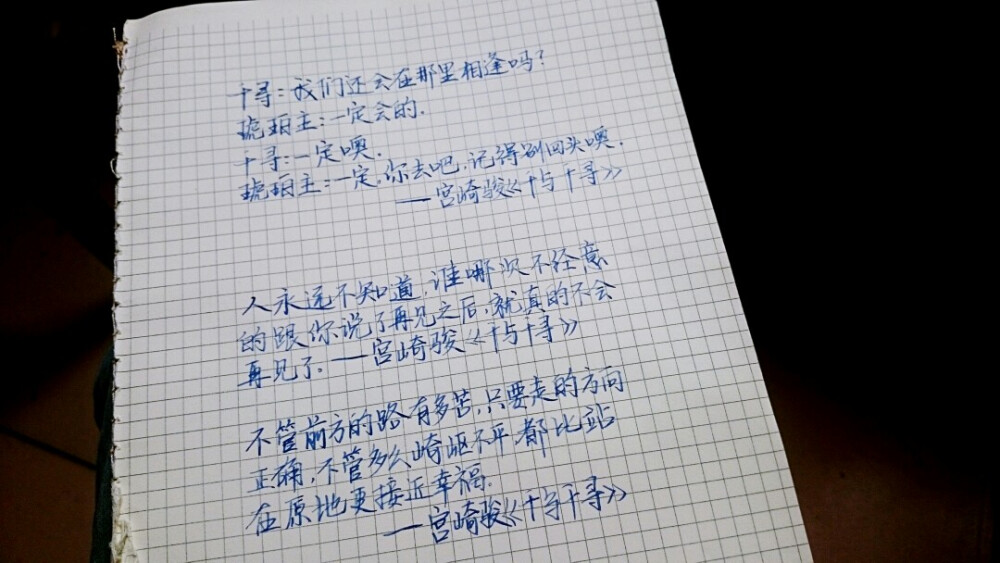 千寻:我们还会在那里相逢吗?
琥珀主:一定会的.
千寻:一定噢.
琥珀主:一定,你去吧,记得别回头噢.
——宫崎骏《千与千寻》
人永远不知道,谁哪次不经意
的跟你说了再见之后,就真的不会
再见了.——宫崎骏《千与千寻》
不管前方的路有多苦,只要走的方向
正确,不管多么崎岖不平,都比站
在原地更接近幸福.
——宫崎骏《千与千寻》